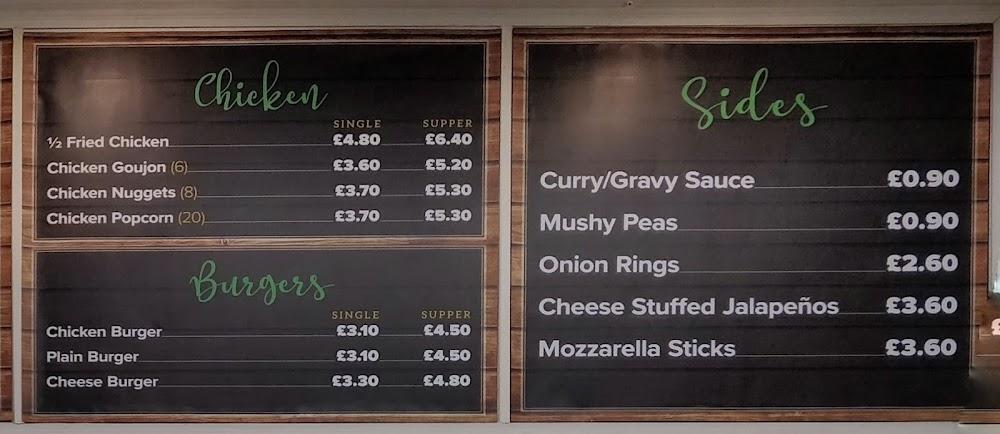 Chicken
SINGLE SUPPER
½ Fried Chicken £4.80 £6.40
Chicken Goujon (6) £3.60 £5.20
Chicken Nuggets (8) £3.70 £5.30
Chicken Popcorn (20) £3.70 £5.30
Burgers
SINGLE SUPPER
Chicken Burger £3.10 £4.50
Plain Burger £3.10 £4.50
Cheese Burger £3.30 £4.80
Sides
Curry/Gravy Sauce £0.90
Mushy Peas £0.90
Onion Rings £2.60
Cheese Stuffed Jalapeños £3.60
Mozzarella Sticks £3.60